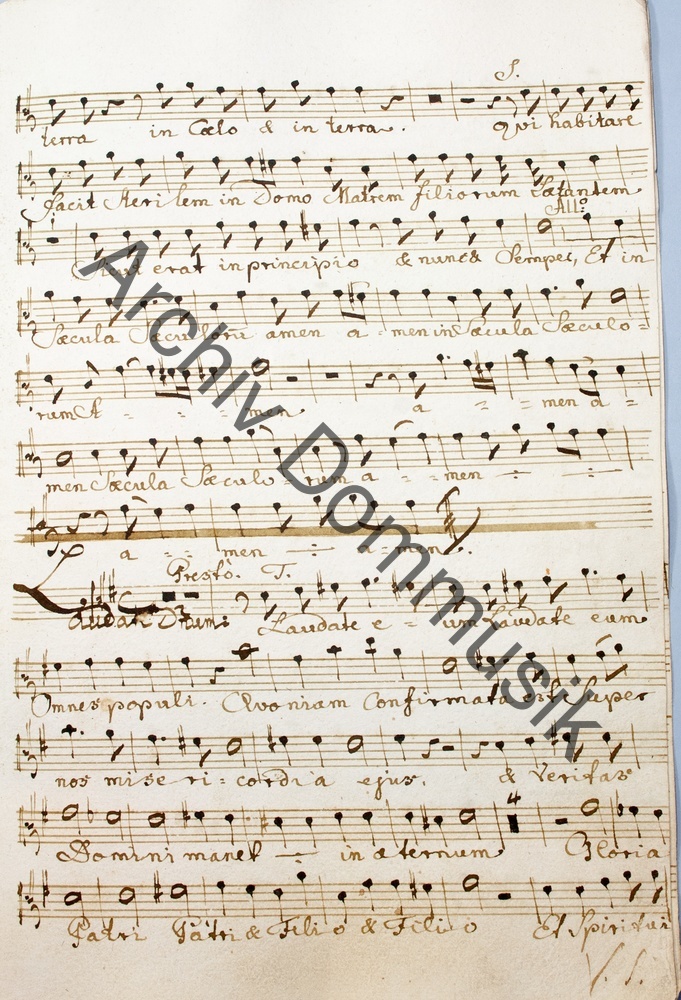 S.
terra in Cœlo & in terra. qui habitare
facit sterilem in Domo Matrem filiorum Lætantem
All:o
Sicut erat in principio & nunc & Semper, Et in
Sæcula Sæculorū amen a - men in Sæcula Sæculo-
rum A - - - men a - - men a -
men Sæcula Sæculo - rum a - - men
a - - men a - men.
Presto. T.
Laudate Dnum: Laudate e - um Laudate eum
Omnes populi. Quoniam Confirmata est super
nos mise ri - cordia ejus. & Veritas
4
Domini manet in æternum Gloria
Patri Patri & Filio & Filio Et Spiritui
V. S.
Archiv Dommusik